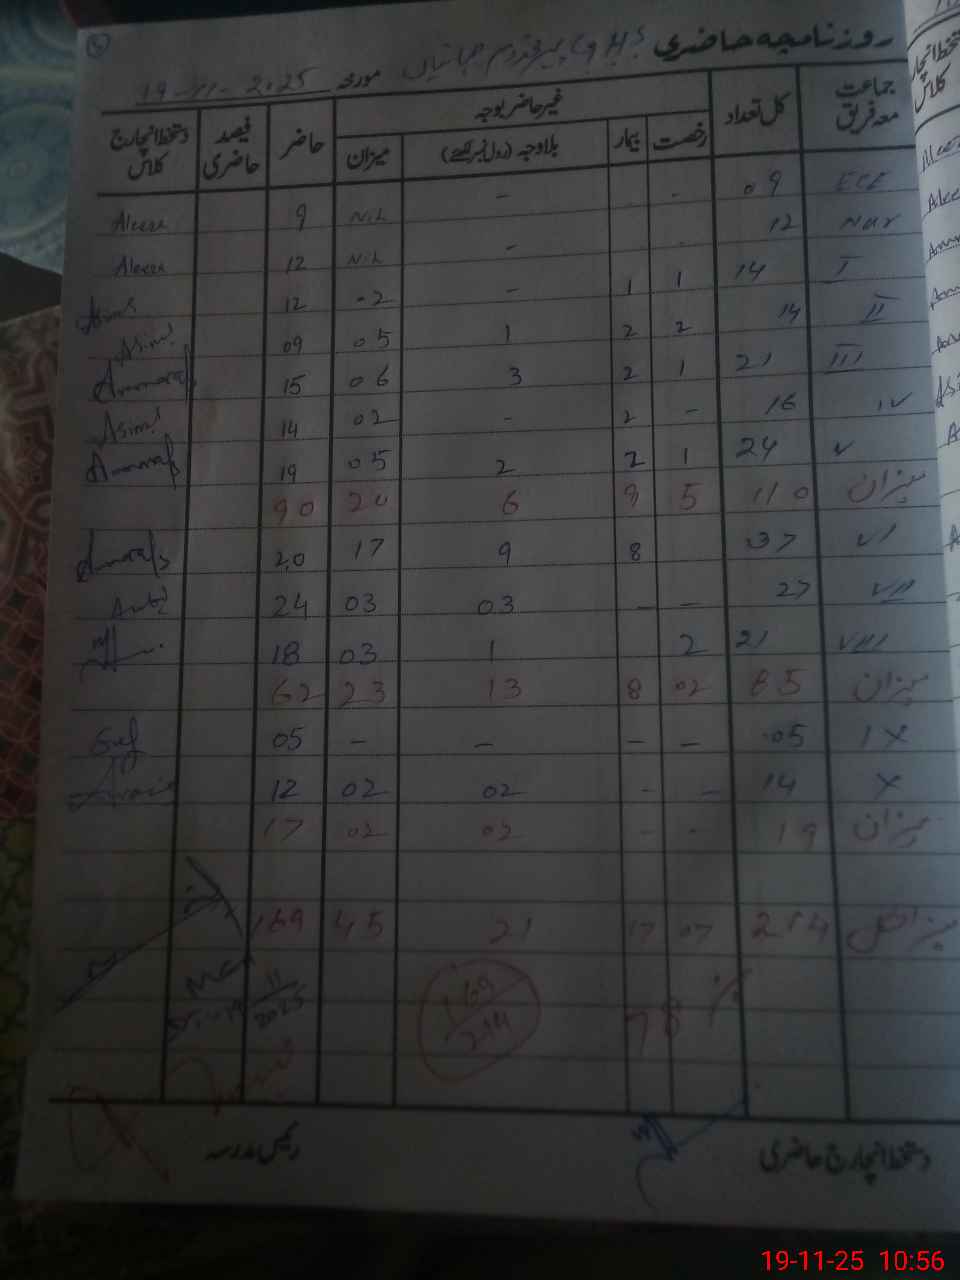 روزنامچہ حاضری GGHS پیر مخدوم جہانیاں مورخہ 19-11-2025
جماعت معہ فریق کل تعداد غیر حاضر بوجہ حاضر فیصد حاضری دستخط انچارج کلاس
رخصت بیمار بلاوجہ (رول نمبر لکھئے) میزان
ECE 09 - - Nil 9 Aleeza
Nur 12 - Nil 12 Aleeza
I 14 1 1 - 02 12 Asim
II 14 2 2 1 05 09 Asim
III 21 1 2 3 06 15 Ammara
IV 16 - 2 - 02 14 Asim
V 24 1 2 2 05 19 Ammara
میزان 110 5 9 6 20 90
VI 37 8 9 17 20 Ammara
VII 27 - - 03 03 24
VIII 21 2 1 03 18
میزان 85 02 8 13 23 62
IX 05 - - - - 05
X 14 - - 02 02 12
میزان 19 - - 02 02 17
میزان 214 07 17 21 45 169
169/214
78 %
19/11/2025
دستخط انچارج حاضری رئیس مدرسہ
19-11-25 10:56